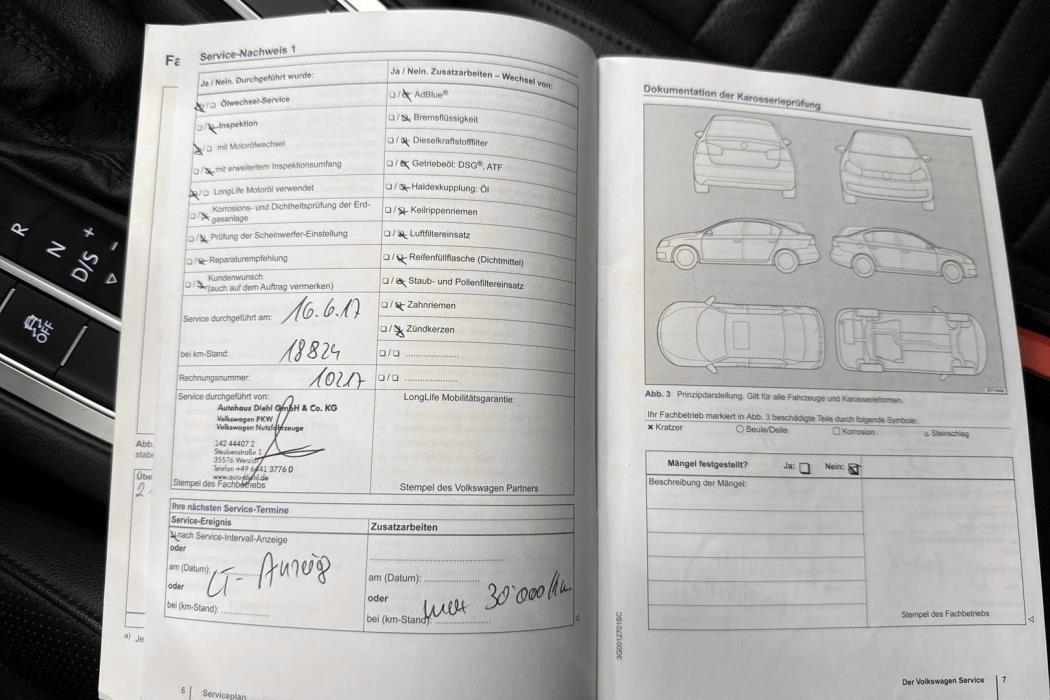 R
N
D/S
+
−
OFF
Fa
Abb.
stab
Übe
2
a) Je
Service-Nachweis 1
Ja / Nein. Durchgeführt wurde:
Ölwechsel-Service
Inspektion
mit Motorölwechsel
mit erweitertem Inspektionsumfang
LongLife Motoröl verwendet
Korrosions- und Dichtheitsprüfung der Erd-
gasanlage
Prüfung der Scheinwerfer-Einstellung
Reparaturempfehlung
Kundenwunsch
(auch auf dem Auftrag vermerken)
Service durchgeführt am: 16.6.17
bei km-Stand: 18824
Rechnungsnummer: 10217
Service durchgeführt von:
Autohaus Diehl GmbH & Co. KG
Volkswagen PKW
Volkswagen Nutzfahrzeuge
242 44407 2
Steubenstraße 1
35576 Wetzlar
Telefon +49 6441 3776 0
Stempel des Fachbetriebs
Ja / Nein. Zusatzarbeiten – Wechsel von:
AdBlue®
Bremsflüssigkeit
Dieselkraftstofffilter
Getriebeöl: DSG®, ATF
Haldexkupplung: Öl
Keilrippenriemen
Luftfiltereinsatz
Reifenfüllflasche (Dichtmittel)
Staub- und Pollenfiltereinsatz
Zahnriemen
Zündkerzen
LongLife Mobilitätsgarantie:
Stempel des Volkswagen Partners
Ihre nächsten Service-Termine
Service-Ereignis
nach Service-Intervall-Anzeige
oder
am (Datum):
oder
bei (km-Stand):
Zusatzarbeiten
am (Datum):
oder
bei (km-Stand): 30'000
6 Serviceplan
Dokumentation der Karosserieprüfung
Abb. 3 Prinzipdarstellung. Gilt für alle Fahrzeuge und Karosserieformen.
Ihr Fachbetrieb markiert in Abb. 3 beschädigte Teile durch folgende Symbole:
× Kratzer ○ Beule/Delle □ Korrosion △ Steinschlag
Mängel festgestellt? Ja: Nein:
Beschreibung der Mängel:
Stempel des Fachbetriebs
3G0012701SC
Der Volkswagen Service 7